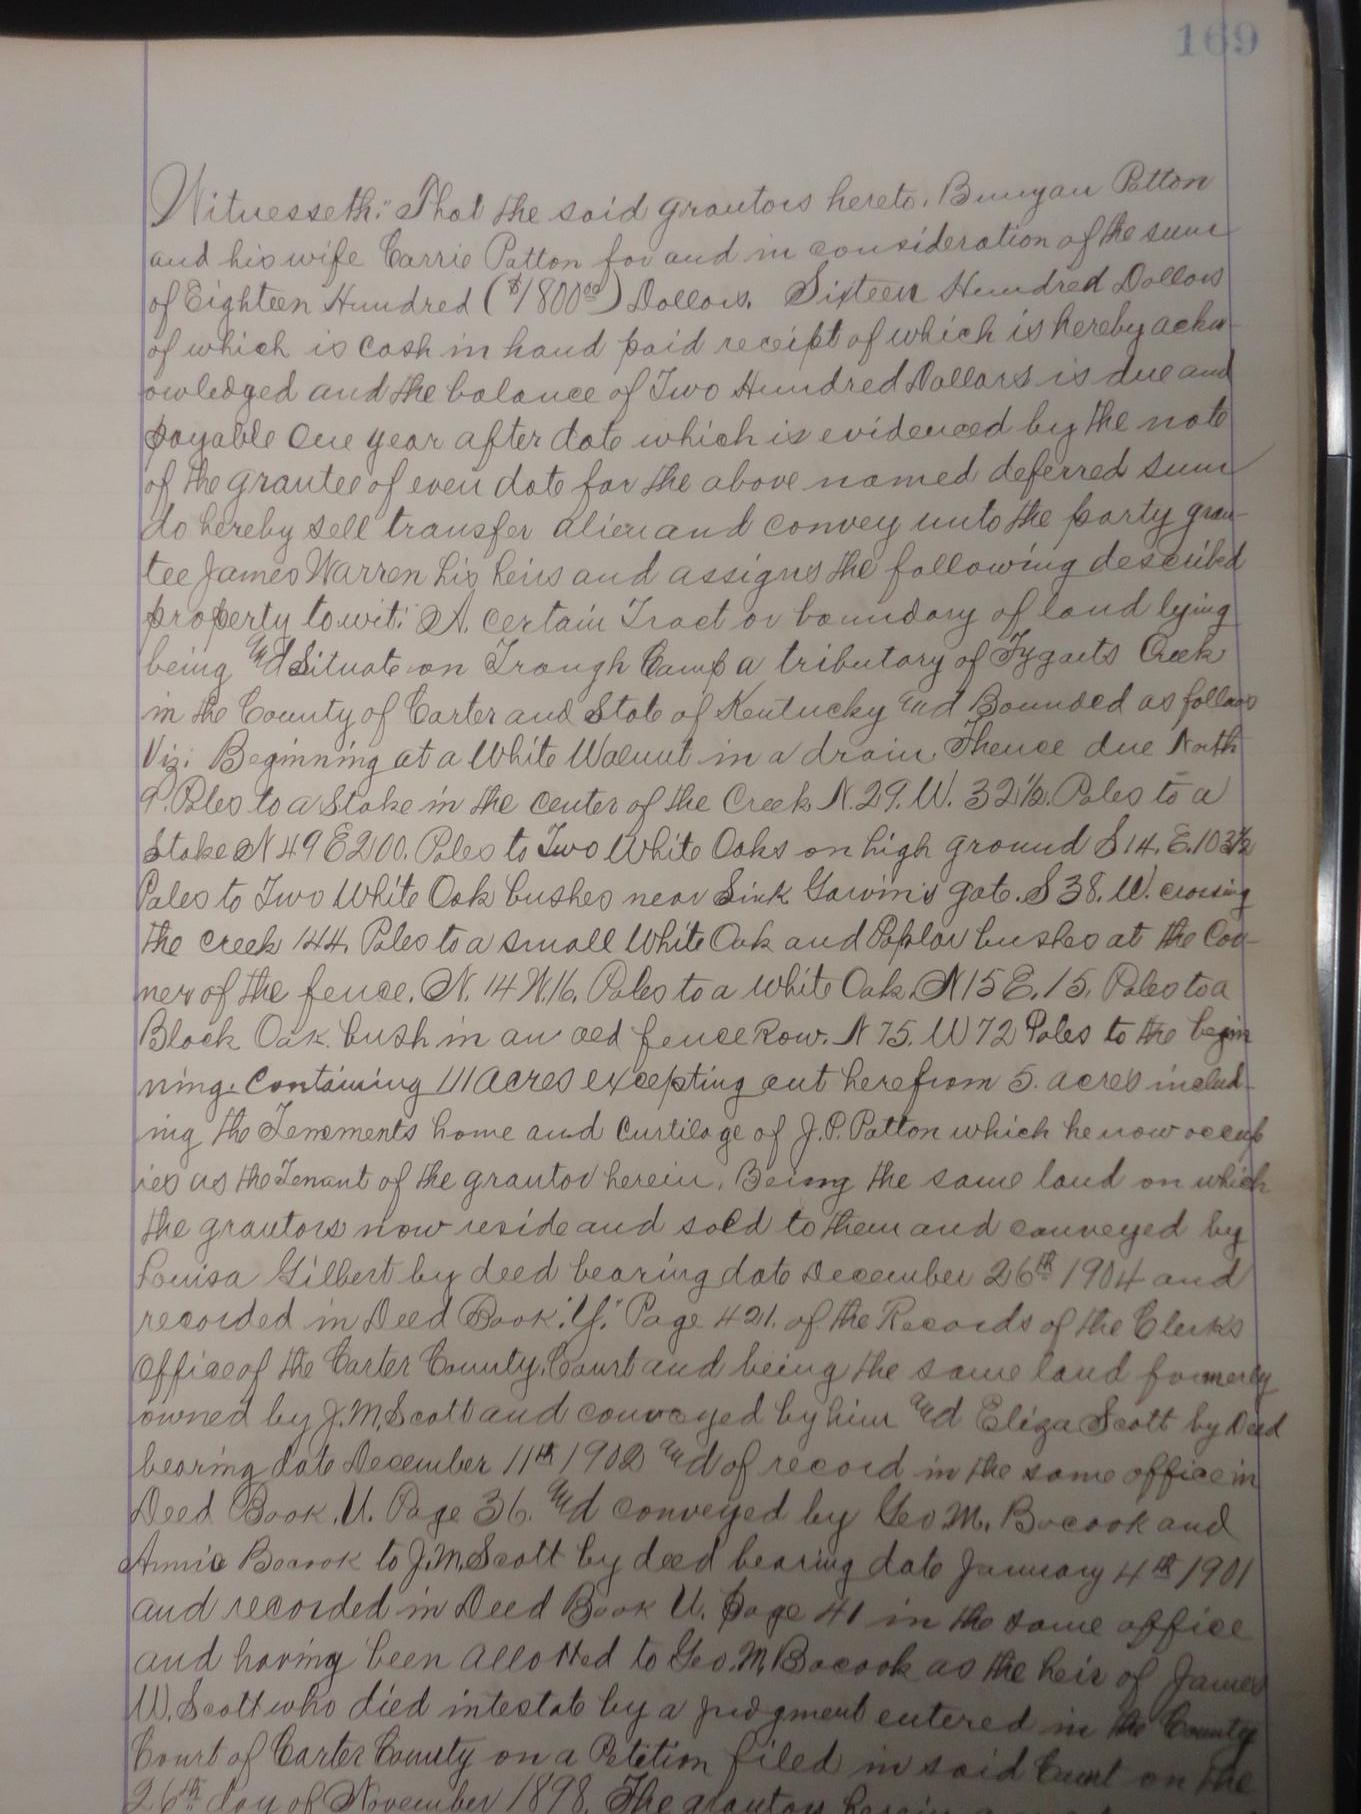 169
Witnesseth: "That the said grantors hereto, Bunyan Patton
and his wife Carrie Patton for and in consideration of the sum
of Eighteen Hundred ($1800.00) Dollars. Sixteen Hundred Dollars
of which is cash in hand paid receipt of which is hereby ackn-
owledged and the balance of Two Hundred Dollars is due and
payable one year after date which is evidenced by the note
of the grantee of even date for the above named deferred sum
do hereby sell transfer alien and convey unto the party gran-
tee James Warren his heirs and assigns the following described
property to wit: A. certain Tract or boundary of land lying
being and Situate on Trough Camp a tributary of Tygarts Creek
in the County of Carter and State of Kentucky and Bounded as follows
Viz: Beginning at a White Walnut in a drain, Thence due North
9. Poles to a Stake in the center of the Creek N. 29. W. 32 1/2. Poles to a
Stake N 49 E 200. Poles to Two White Oaks on high ground S 14. E. 103 1/2
Poles to Two White Oak bushes near Sink Garvin's gate. S 38. W. crossing
the creek 144 Poles to a small White Oak and Poplar bushes at the Cor-
ner of the fence. N. 14 W. 16. Poles to a White Oak. N 15 E. 15. Poles to a
Black Oak bush in an old fence Row. N 75. W 72 Poles to the begin
ning. Containing 111 acres excepting out herefrom 5. acres includ-
ing the Tenements home and Curtilage of J. P. Patton which he now occup
ies as the Tenant of the grantor herein. Being the same land on which
the grantors now reside and sold to them and conveyed by
Louisa Gilbert by deed bearing date December 26th 1904 and
recorded in Deed Book. "Y." Page 421. of the Records of the Clerks
Office of the Carter County Court and being the same land formerly
owned by J. M. Scott and conveyed by him and Eliza Scott by Deed
bearing date December 11th 1902 and of record in the same office in
Deed Book. U. Page 36. and conveyed by Geo M. Bocook and
Annie Bocook to J. M. Scott by deed bearing date January 4th 1901
and recorded in Deed Book U. page 41 in the same office
and having been allotted to Geo. M. Bocook as the heir of James
W. Scott who died intestate by a judgment entered in the County
Court of Carter County on a Petition filed in said Court on the
26th day of November 1898. The grantors herein